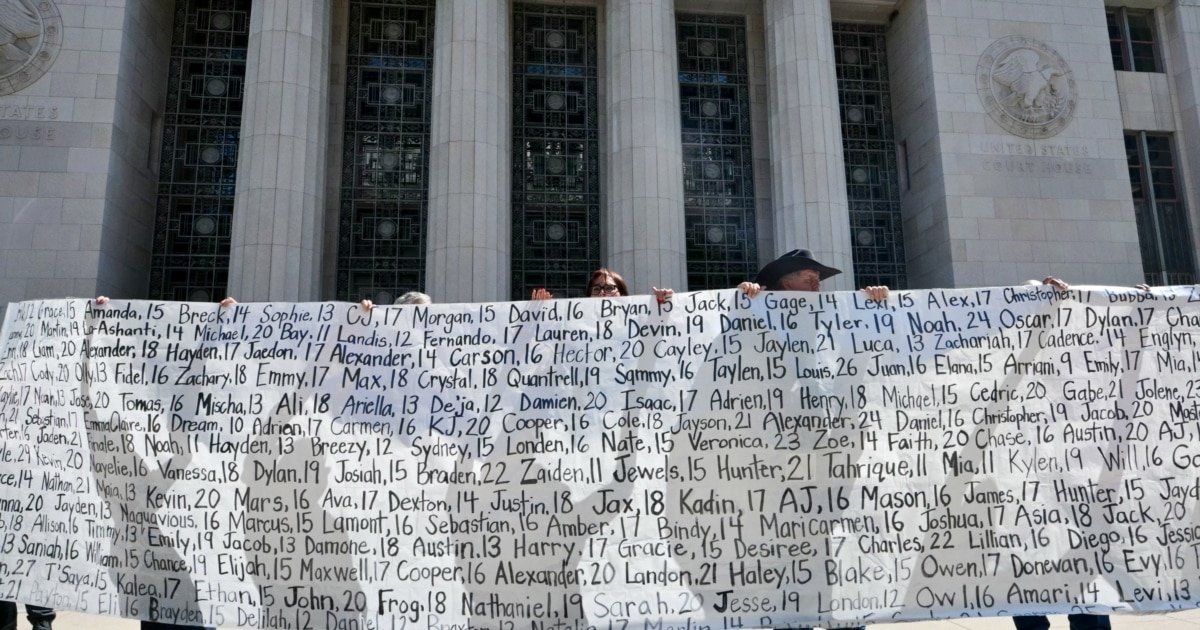 STATES
HOUSE
UNITED STATES
COURT HOUSE
Grace,15 Amanda,15 Breck,14 Sophie,13 CJ,17 Morgan,15 David,16 Bryan,15 Jack,15 Gage,14 Lexi,15 Alex,17 Christopher,17 Bubba,15
20 Martin,19 La-Ashanti,14 Michael,20 Bay,11 Landis,12 Fernando,17 Lauren,18 Devin,19 Daniel,16 Tyler,19 Noah,24 Oscar,17 Dylan,17
18 Liam,20 Alexander,18 Hayden,17 Jaedon,17 Alexander,14 Carson,16 Hector,20 Cayley,15 Jaylen,21 Luca,13 Zachariah,17 Cadence,14 Englyn,
Zach,17 Cody,20 Olly,13 Fidel,16 Zachary,18 Emmy,17 Max,18 Crystal,18 Quantrell,19 Sammy,16 Taylen,15 Louis,26 Juan,16 Elana,15 Arriani,9 Emily,17 Mia,
17 Nian,13 20 Tomas,16 Mischa,13 Ali,18 Ariella,13 De'ja,12 Damien,20 Isaac,17 Adrien,19 Henry,18 Michael,15 Cedric,20 Gabe,21 Jolene,
21 Sebastian,17 EmmaClaire,16 Dream,10 Adrien,17 Carmen,16 KJ,20 Cooper,16 Cole,18 Jayson,21 Alexander,24 Daniel,16 Christopher,19 Jacob,20
16 Jaden,21 18 Noah,11 Hayden,13 Breezy,12 Sydney,15 Londen,16 Nate,15 Veronica,23 Zoe,14 Faith,20 Chase,16 Austin,20 AJ,
24 Kevin,20 Nayelie,16 Vanessa,18 Dylan,19 Josiah,15 Braden,22 Zaiden,11 Jewels,15 Hunter,21 Tahrique,11 Mia,11 Kylen,19 Will,16
14 Nathan,21 13 Kevin,20 Mars,16 Ava,17 Dexton,14 Justin,18 Jax,18 Kadin,17 AJ,16 Mason,16 James,17 Hunter,15
20 Jayden,13 Naquavious,16 Marcus,15 Lamont,16 Sebastian,16 Amber,17 Bindy,14 Maricarmen,16 Joshua,17 Asia,18 Jack,20
18 Alison,16 Timmy,13 Emily,19 Jacob,13 Damohe,18 Austin,13 Harry,17 Gracie,15 Desiree,17 Charles,22 Lillian,16 Diego,16
13 Saniah,16 William,15 Chance,19 Elijah,15 Maxwell,17 Cooper,16 Alexander,20 Landon,21 Haley,15 Blake,15 Owen,17 Donevan,16 Evy,16
27 T'Saya,15 Kalea,17 Ethan,15 John,20 Frog,18 Nathaniel,19 Sarah,20 Jesse,19 London,12 Owl,16 Amari,14 Levi,13
21 Payton,15 Eli,16 Brayden,15 Delilah,12 Daniel